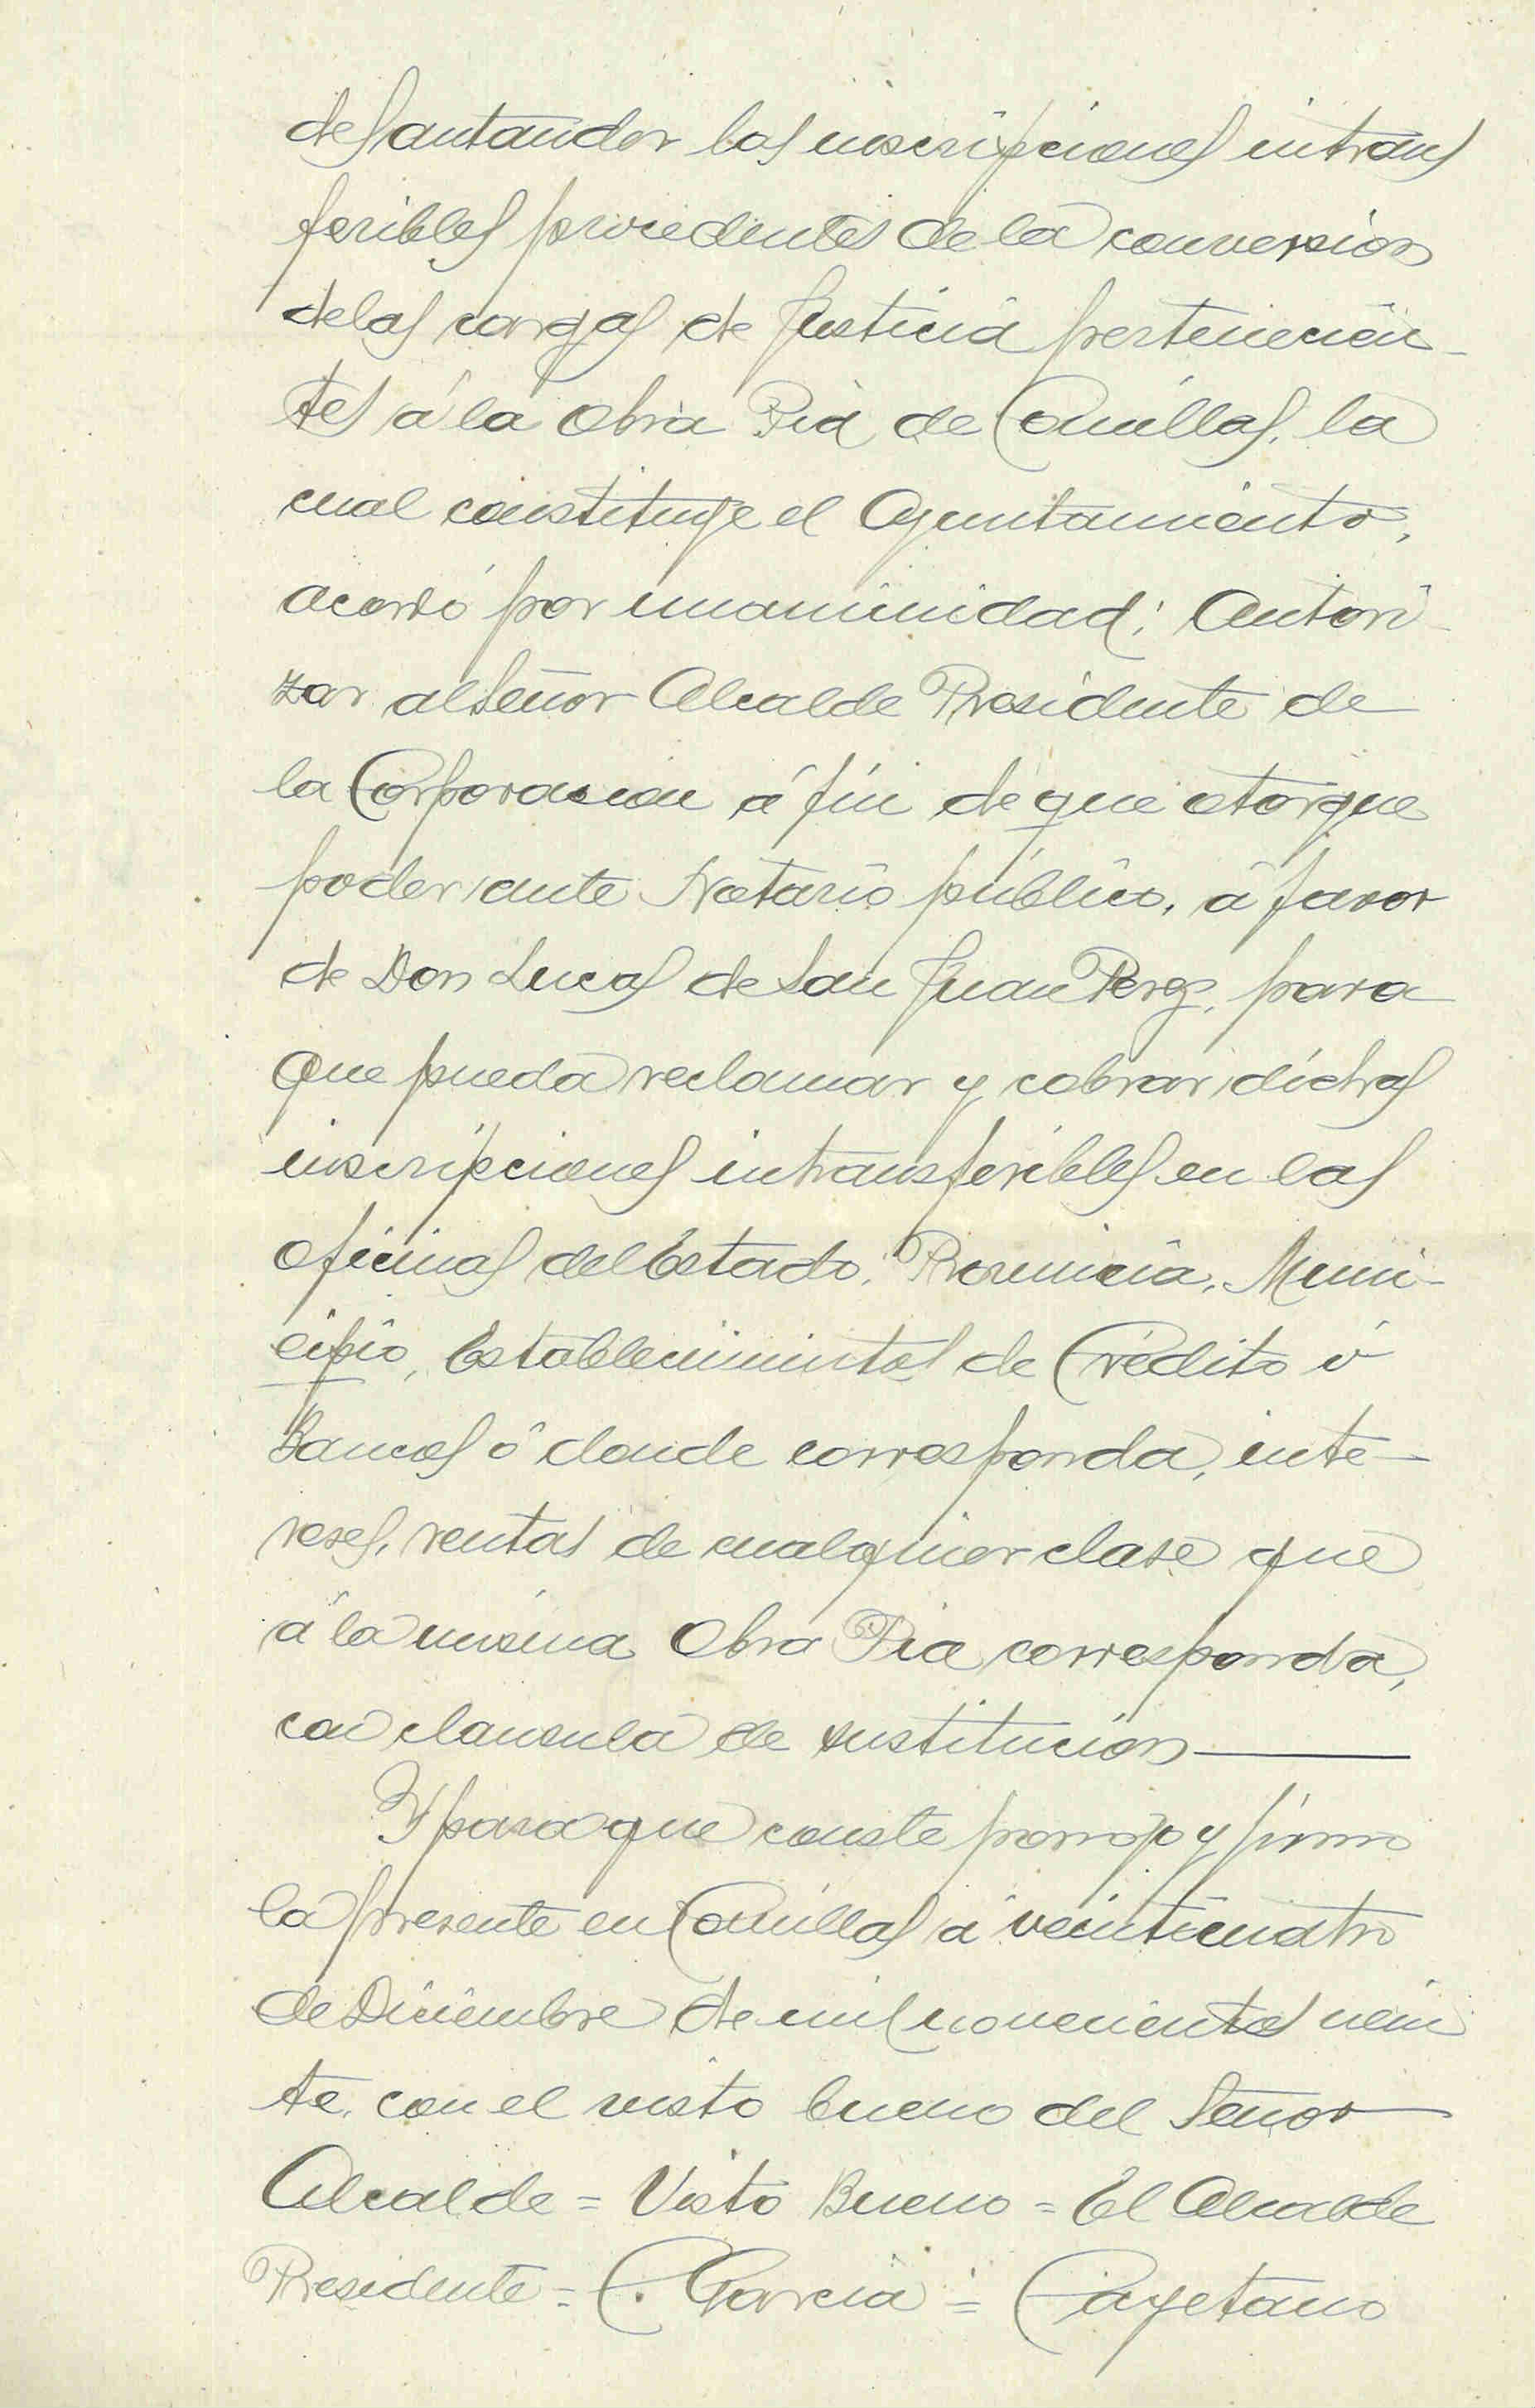 de Santander las inscripciones intrans
feribles procedentes de la conversion
de las cargas de Justicia pertenecien-
tes á la Obra Pia de Comillas, la
cual constituye el Ayuntamiento,
acordó por unanimidad: Autori-
zar al Señor Alcalde Presidente de
la Corporacion á fin de que otorgue
poder ante Notario público, á favor
de Don Lucas de San Juan Perez, para
que pueda reclamar y cobrar dichas
inscripciones intransferibles en las
oficinas del Estado, Provincia, Muni-
cipio, Establecimientos de Crédito ó
Bancos ó donde corresponda, inte-
reses, rentas de cualquier clase que
á la misma Obra Pia corresponda,
con clausula de sustitucion
Y para que conste pongo y firmo
la presente en Comillas á veinticuatro
de Diciembre de mil novecientos vein
te, con el visto bueno del Señor
Alcalde = Visto Bueno = El Alcalde
Presidente = C. Garcia = Cayetano